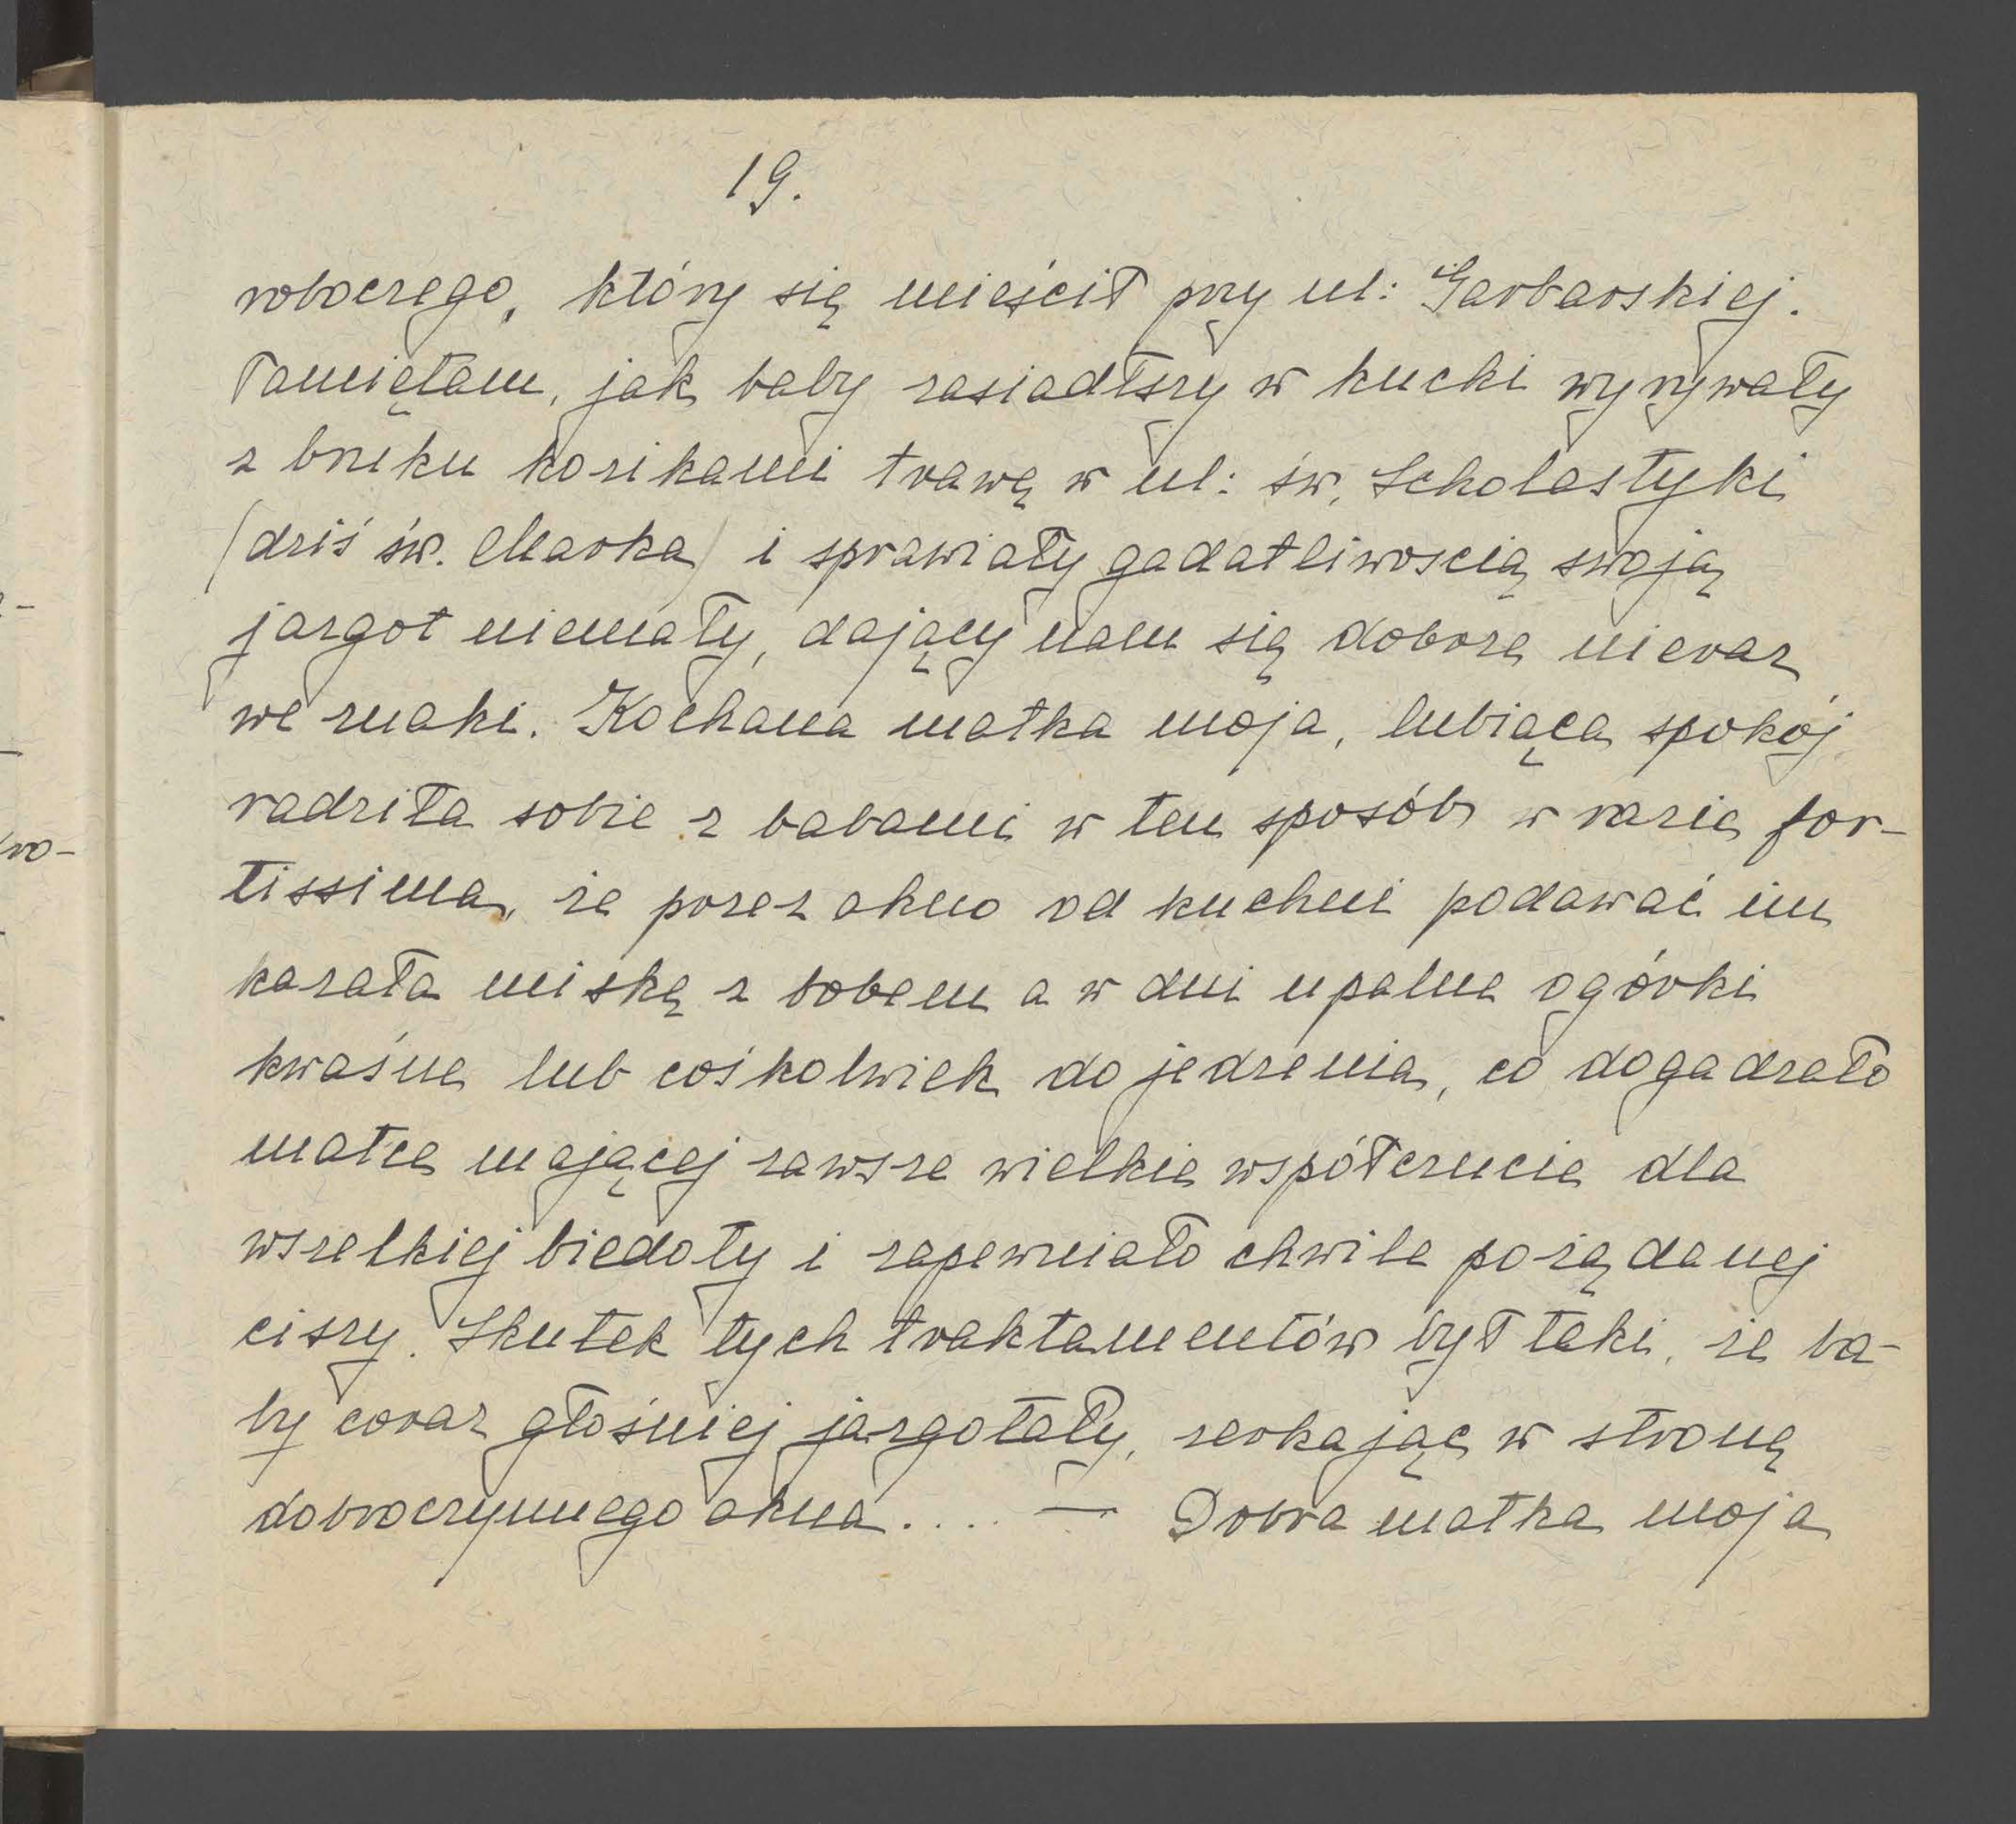 19.
roboczego, który się mieścił przy ul: Garbarskiej.
Pamiętam, jak baby zasiadłszy w kucki wyrywały
z bruku kozikami trawę w ul: św. Scholastyki
(dziś św. Marka) i sprawiały gadatliwoscią swoją
jazgot niemały, dający nam się dobrze nieraz
we znaki. Kochana matka moja, lubiąca spokój
radziła sobie z babami w ten sposób w razie for-
tissima, że przez okno od kuchni podawać im
kazała miskę z bobem a w dni upalne ogórki
kwaśne lub cośkolwiek do jedzenia, co dogadzało
matce mającej zawsze wielkie współczucie dla
wszelkiej biedoty i zapewniało chwile pożądanej
ciszy. Skutek tych traktamentów był taki, że ba-
by coraz głośniej jazgotały, zerkając w stronę
dobroczynnego okna.... — Dobra matka moja